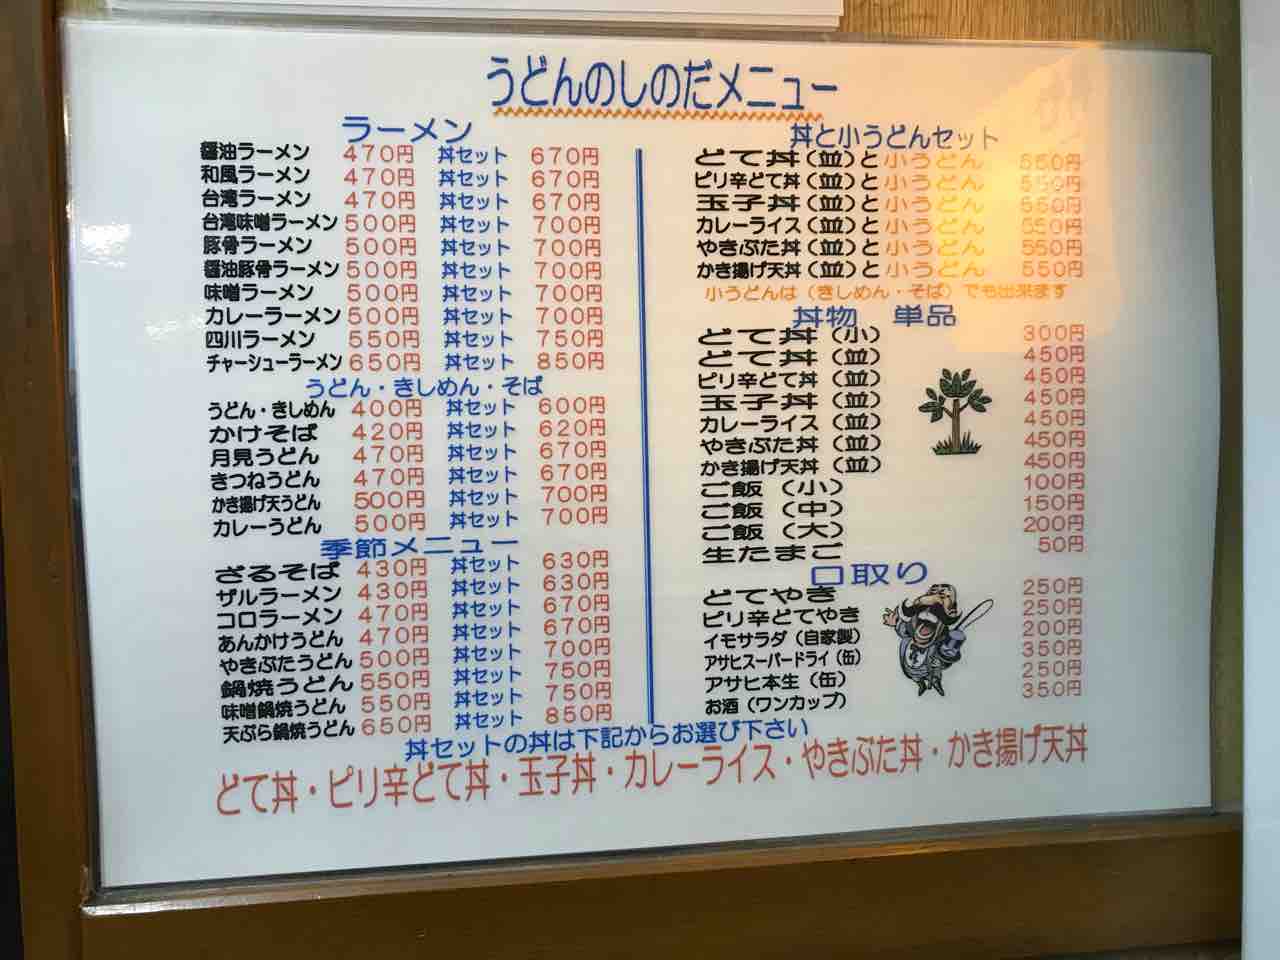 うどんのしのだメニュー
ラーメン
醤油ラーメン 470円 丼セット 670円
和風ラーメン 470円 丼セット 670円
台湾ラーメン 470円 丼セット 670円
台湾味噌ラーメン 500円 丼セット 700円
豚骨ラーメン 500円 丼セット 700円
醤油豚骨ラーメン 500円 丼セット 700円
味噌ラーメン 500円 丼セット 700円
カレーラーメン 500円 丼セット 700円
四川ラーメン 550円 丼セット 750円
チャーシューラーメン 650円 丼セット 850円
うどん・きしめん・そば
うどん・きしめん 400円 丼セット 600円
かけそば 420円 丼セット 620円
月見うどん 470円 丼セット 670円
きつねうどん 470円 丼セット 670円
かき揚げ天うどん 500円 丼セット 700円
カレーうどん 500円 丼セット 700円
季節メニュー
ざるそば 430円 丼セット 630円
ザルラーメン 430円 丼セット 630円
コロラーメン 470円 丼セット 670円
あんかけうどん 470円 丼セット 670円
やきぶたうどん 500円 丼セット 700円
鍋焼うどん 550円 丼セット 750円
味噌鍋焼うどん 550円 丼セット 750円
天ぷら鍋焼うどん 650円 丼セット 850円
丼と小うどんセット
どて丼(並)と小うどん 550円
ピリ辛どて丼(並)と小うどん 550円
玉子丼(並)と小うどん 550円
カレーライス(並)と小うどん 550円
やきぶた丼(並)と小うどん 550円
かき揚げ天丼(並)と小うどん 550円
小うどんは(きしめん・そば)でも出来ます
丼物 単品
どて丼(小) 300円
どて丼(並) 450円
ピリ辛どて丼(並) 450円
玉子丼(並) 450円
カレーライス(並) 450円
やきぶた丼(並) 450円
かき揚げ天丼(並) 450円
ご飯(小) 100円
ご飯(中) 150円
ご飯(大) 200円
生たまご 50円
口取り
どてやき 250円
ピリ辛どてやき 250円
イモサラダ(自家製) 200円
アサヒスーパードライ(缶) 350円
アサヒ本生(缶) 250円
お酒(ワンカップ) 350円
丼セットの丼は下記からお選び下さい
どて丼・ピリ辛どて丼・玉子丼・カレーライス・やきぶた丼・かき揚げ天丼